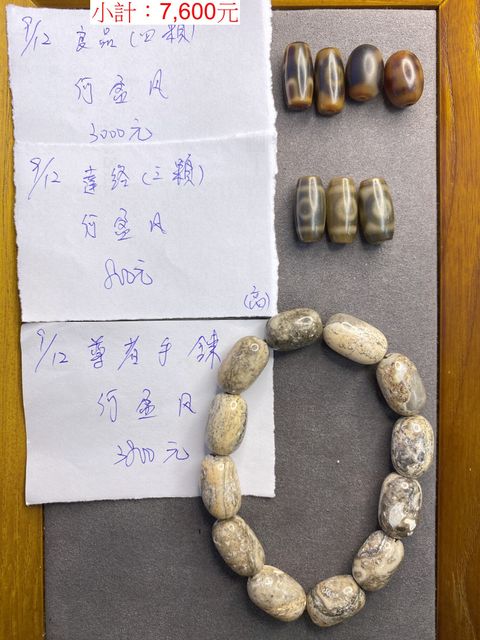 小計：7,600元
9/12 良品(四顆)
何孟凡
3000元
9/12 達絡(三顆)
何孟凡
800元
(高)
9/12 尊者手鍊
何孟凡
3800元